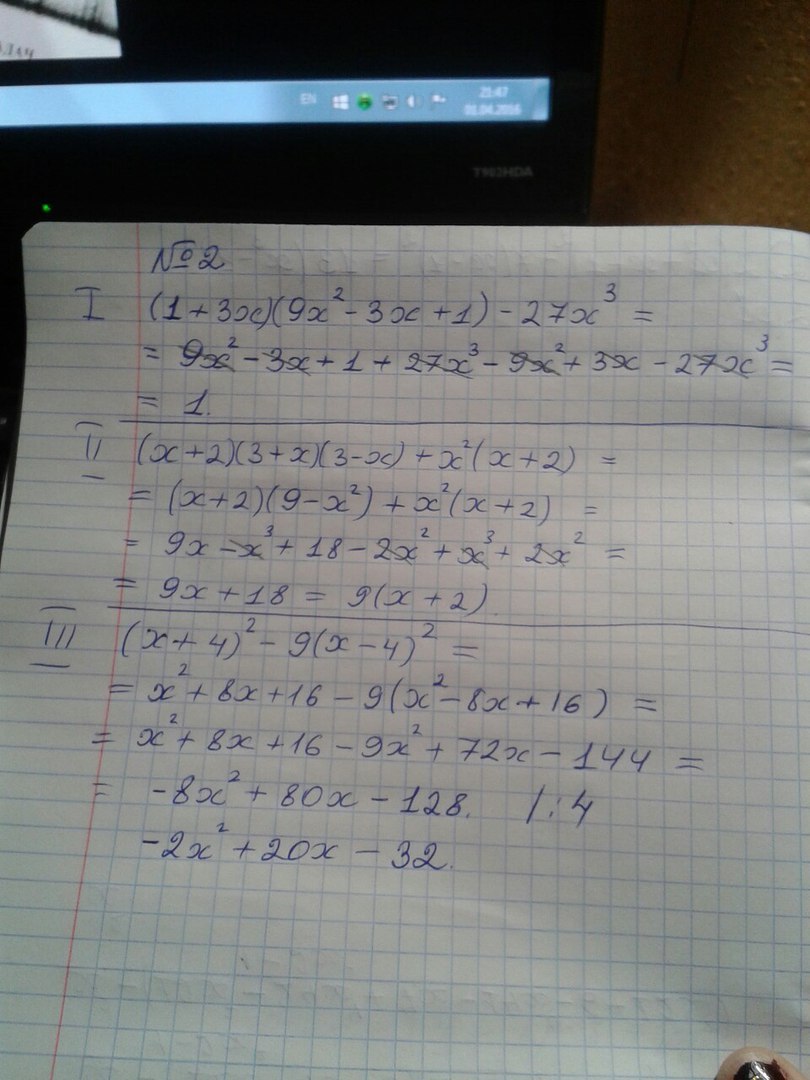 EN
21:47
01.04.2016
T902HDA
№2
I (1+3x)(9x²-3x+1)-27x³=
= 9x²-3x+1+27x³-9x²+3x-27x³=
= 1.
II (x+2)(3+x)(3-x)+x²(x+2) =
= (x+2)(9-x²)+x²(x+2) =
= 9x-x³+18-2x²+x³+2x² =
= 9x+18 = 9(x+2).
III (x+4)²-9(x-4)² =
= x²+8x+16-9(x²-8x+16) =
= x²+8x+16-9x²+72x-144 =
= -8x²+80x-128. /:4
-2x²+20x-32.